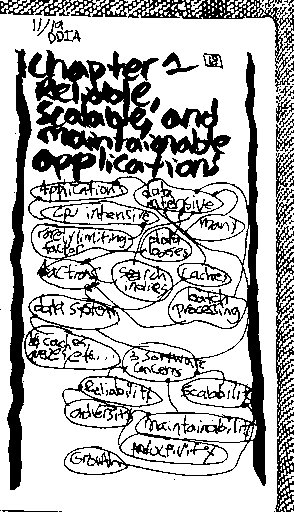 11/19
DDIA
Chapter 1
Reliable,
Scalable, and
maintainable
applications
Applications
data intensive
CPU intensive
many
rarely limiting factor
data bases
search indices
caches
batch processing
data system
3 software concerns
Reliability
Scalability
adversity
maintainability
Growth